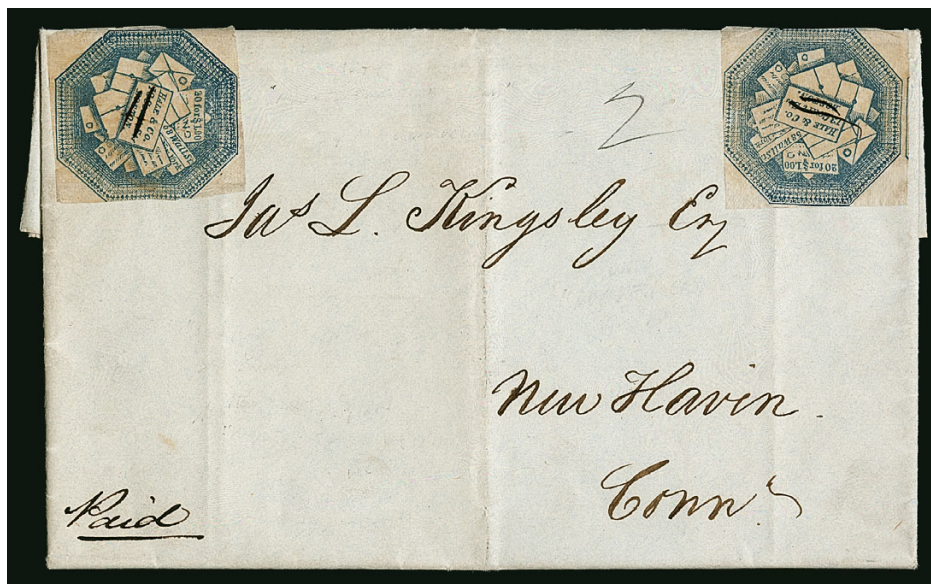 HALE & CO.
20 for $1.00
2
HALE & CO.
58 Wall St
20 for $1.00
Jas L. Kingsley Esq
New Haven.
Conn.
Paid